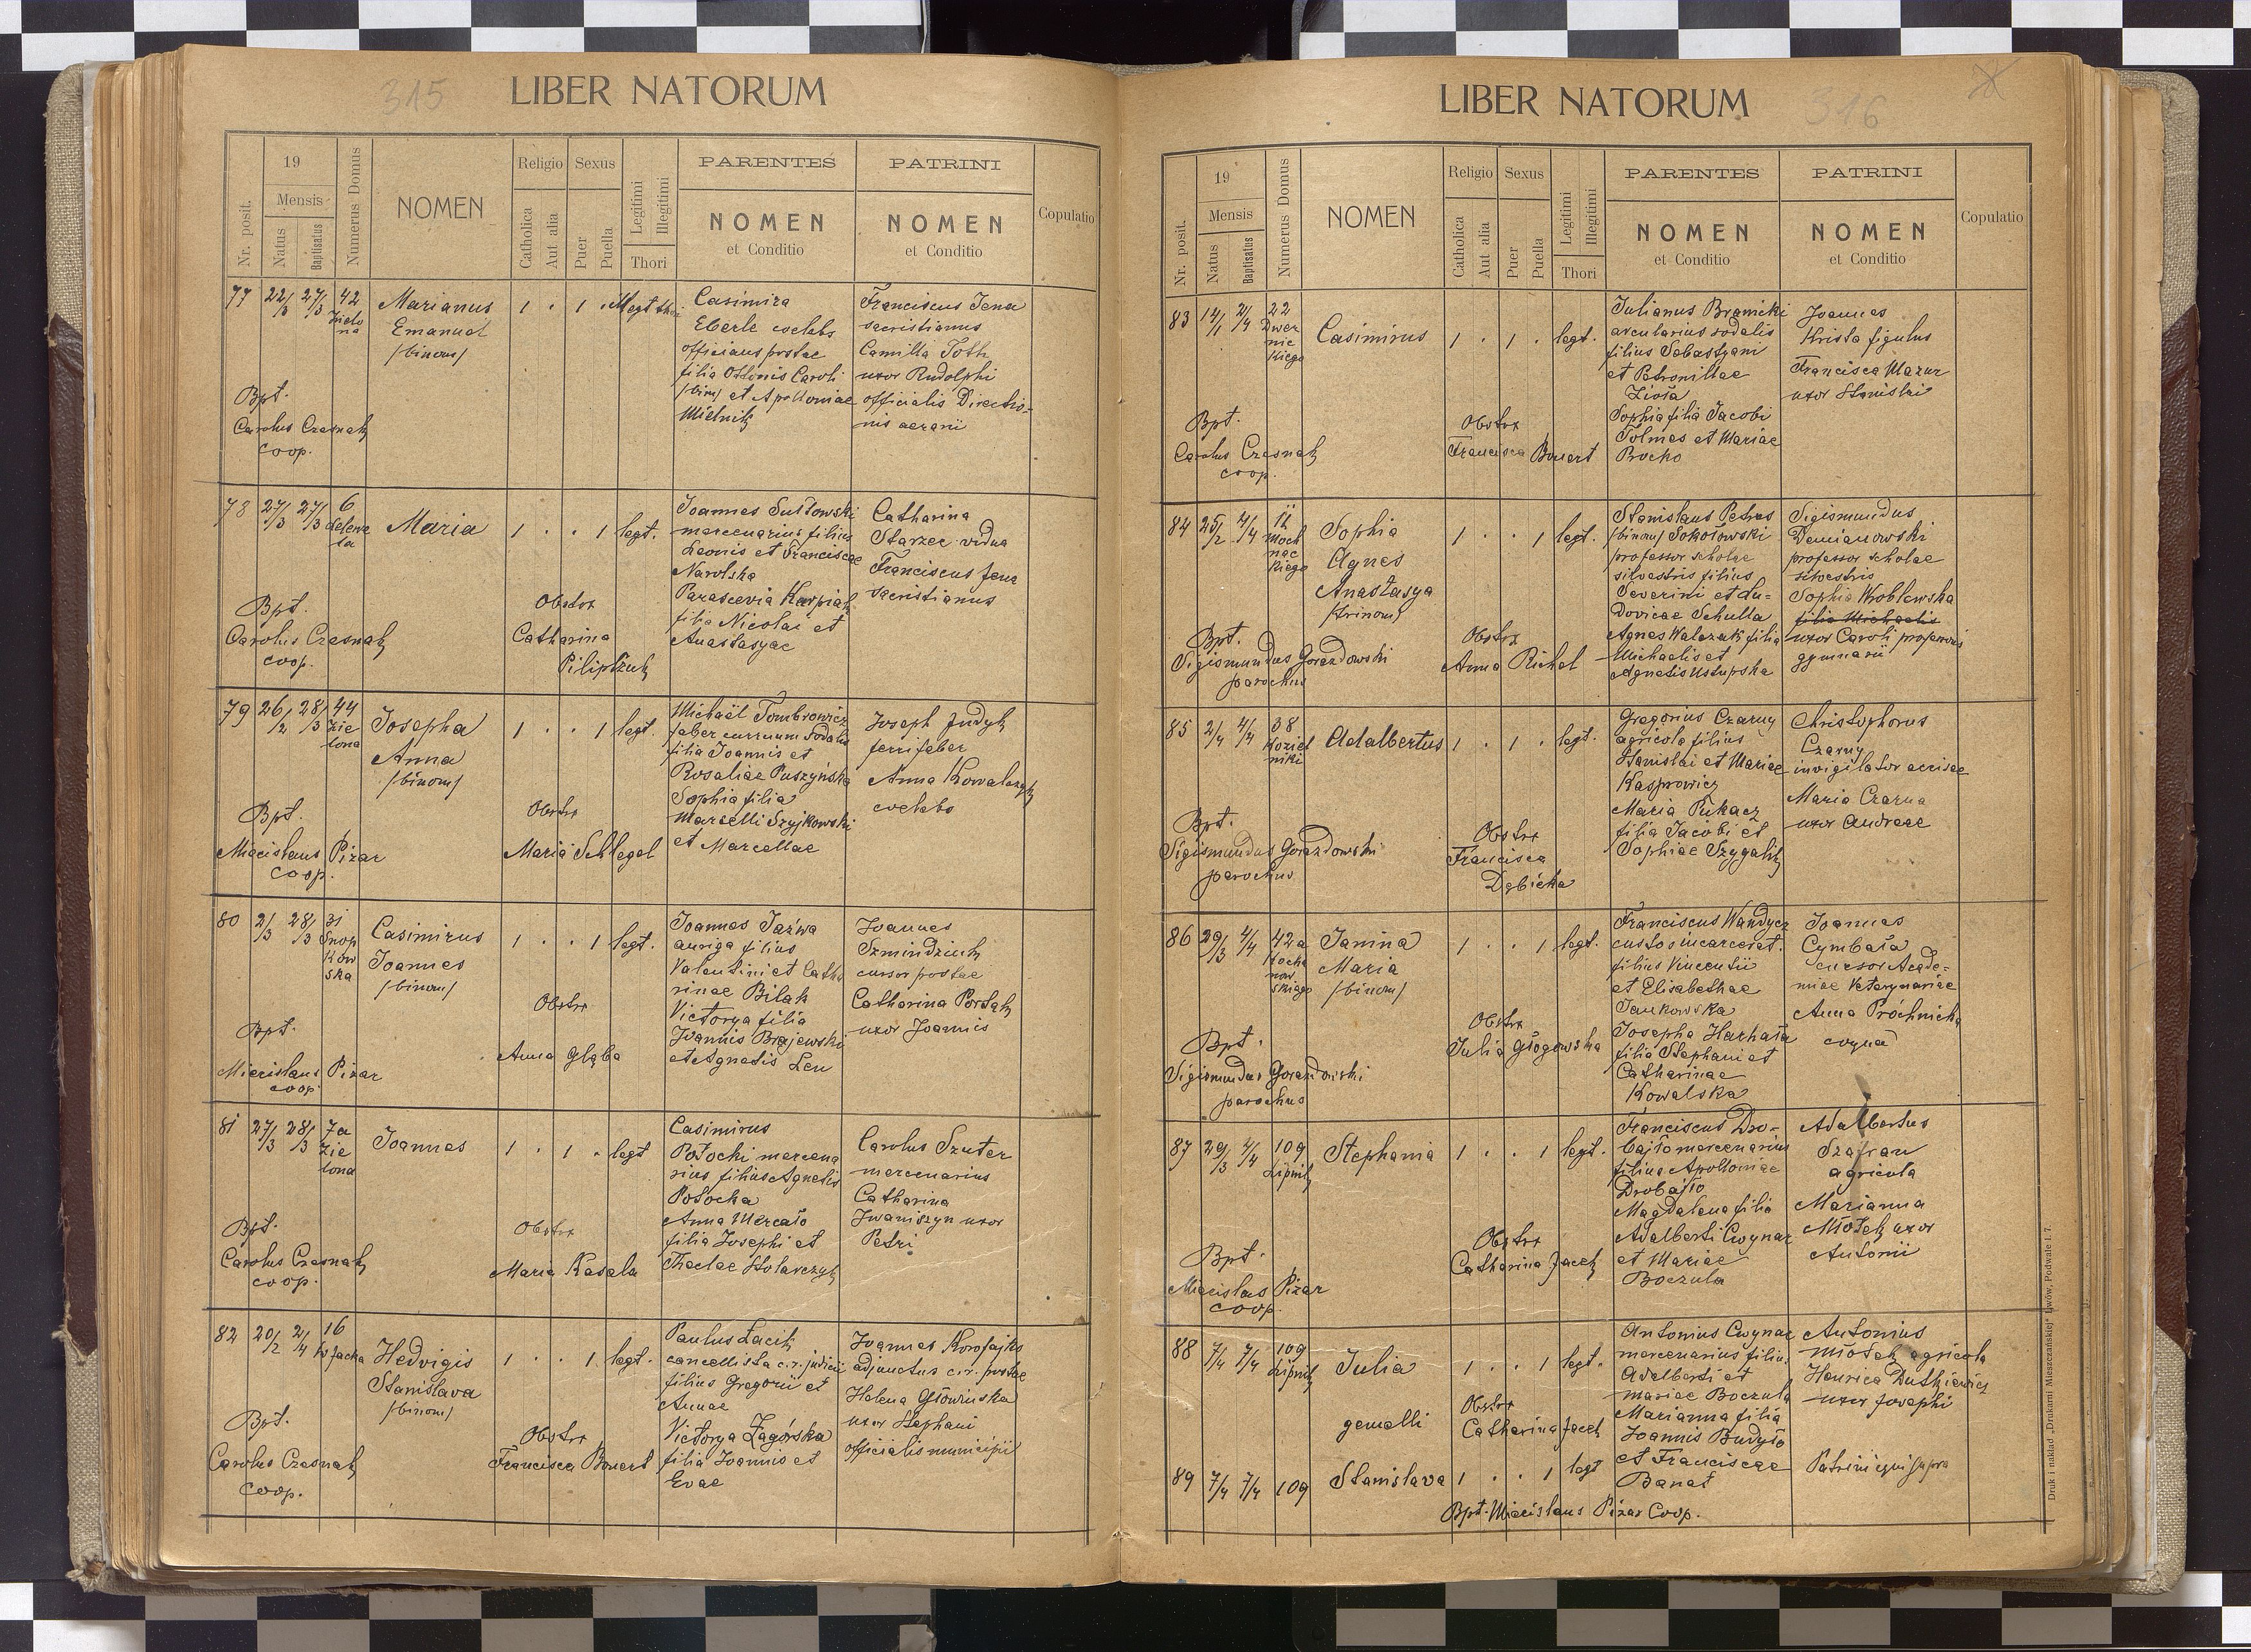 315
LIBER NATORUM
Nr. posit.
19
Mensis
Natus
Baptisatus
Numerus Domus
NOMEN
Religio
Catholica
Aut alia
Sexus
Puer
Puella
Legitimi
Illegitimi
Thori
PARENTES
NOMEN
et Conditio
PATRINI
NOMEN
et Conditio
Copulatio
77 22/3 27/3 42
Zielo
na
Marianus
Emanuel
/binom/
1 . 1 . illegt thori
Casimira
Eberle coelebs
officians postae
filia Ottonis Caroli
/bin/ et Apolloniae
Mielnik
Franciscus Jena
sacristianus
Camilla Toth
uxor Rudolphi
officialis Directio-
nis aerarii
Bpt.
Carolus Czesnak
coop.
78 27/3 27/3 6
Lelewe
la
Maria
1 . . 1 legt.
Joannes Sułtowski
mercenarius filius
Leonis et Franciscae
Narolska
Parascevia Karpiak
filia Nicolai et
Anastasyae
Catharina
Starzec vidua
Franciscus Jena
sacristianus
Bpt.
Carolus Czesnak
coop.
Obstrx
Catharina
Pilipczuk
79 26/2 28/3 44
Zie
lona
Josepha
Anna
/binom/
1 . . 1 legt.
Michaël Tombrowicz
faber curruum sodalis
filia Joannis et
Rosaliae Puszyńska
Sophia filia
Marcelli Szyjkowski
et Marcellae
Joseph Judyk
ferrifaber
Anna Kowalczyk
coelebs
Bpt.
Miecislaus Pizar
coop.
Obstrx
Maria Schlegel
80 2/3 28/3 31
Snop
kow
ska
Casimirus
Joannes
/binom/
1 . . 1 legt.
Joannes Jaźwa
auriga filius
Valentini et Catha
rinae Bilak
Victorya filia
Joannis Brajewski
et Agnetis Len
Joannes
Szmindziuk
cursor postae
Catharina Portak
uxor Joannis
Bpt.
Miecislaus Pizar
coop
Obstrx
Anna Głąba
81 27/3 28/3 7a
Zie
lona
Joannes
1 . 1 . legt
Casimirus
Potocki mercena
rius filius Agnetis
Potocka
Anna Mercało
filia Josephi et
Theclae Stolarczyk
Carolus Szuter
mercenarius
Catharina
Iwaniszyn uxor
Petri
Bpt.
Carolus Czesnak
coop.
Obstrx
Maria Kasala
82 20/2 2/4 16
Hedvigis
Stanislava
/binom/
1 . . 1 legt.
Paulus Łacik
cancellista c.r. judicii
filius Gregorii et
Annae
Victorya Zagórska
filia Joannis et
Evae
Joannes Korofajko
adjunctus c.r. postae
Helena Głowinska
uxor Stephani
officialis municipii
Bpt.
Carolus Czesnak
coop.
Obstrx
Francisca Bouert
LIBER NATORUM
316
Nr. posit.
19
Mensis
Natus
Baptisatus
Numerus Domus
NOMEN
Religio
Catholica
Aut alia
Sexus
Puer
Puella
Legitimi
Illegitimi
Thori
PARENTES
NOMEN
et Conditio
PATRINI
NOMEN
et Conditio
Copulatio
83 14/1 2/4 22
Dwer
nic
kiego
Casimirus
1 . 1 . legt.
Julianus Bronicki
arcularius sodalis
filius Sebastyani
et Petronillae
Zioła
Sophia filia Jacobi
Tolmes et Mariae
Procko
Joannes
Krista figulus
Francisca Mazur
uxor Stanislai
Bpt.
Carolus Czesnak
coop.
Obstrx
Francisca Bouert
84 25/2 4/4 12
Moch
nac
kiego
Sophia
Agnes
Anastasya
/trinom/
1 . . 1 legt.
Stanislaus Petrus
/binom/ Sokołowski
professor scholae
silvestris filius
Severini et Lu-
dovicae Schulla
Agnes Walczak filia
Michaelis et
Agnetis Ustupska
Sigismundus
Demianowski
professor scholae
silvestris
Sophia Wroblewska
filia Michaelis
uxor Caroli professoris
gymnasii
Bpt.
Sigismundus Gorazdowski
parochus
Obstrx
Anna Richel
85 2/4 4/4 38
Koziel
niki
Adalbertus
1 . 1 . legt.
Gregorius Czarny
agricola filius
Stanislai et Mariae
Kasprowicz
Maria Pukacz
filia Jacobi et
Sophiae Szygalik
Christophorus
Czarny
invigilator accisae
Maria Czarna
uxor Andreae
Bpt.
Sigismundus Gorazdowski
parochus
Obstrx
Francisca
Dębicka
86 29/3 4/4 42a
Kocha
now
skiego
Janina
Maria
/binom/
1 . . 1 legt.
Franciscus Wandycz
custos incarcerat.
filius Vincentii
et Elisabethae
Jankowska
Josepha Harhała
filia Stephani et
Catharinae
Kowalska
Joannes
Cymbała
cursor Acade-
miae Veterynariae
Anna Próchnicka
coqua
Bpt.
Sigismundus Gorazdowski
parochus
Obstrx
Julia Głogowska
87 29/3 4/4 109
Lipnik
Stephania
1 . . 1 legt.
Franciscus Dro-
bajło mercenarius
filius Apolloniae
Drobajło
Magdalena filia
Adalberti Cwynar
et Mariae
Boczula
Adalbertus
Szafran
agricola
Marianna
Młotek uxor
Antonii
Bpt.
Miecislas Pizar
coop.
Obstrx
Catharina Jacek
88 7/4 7/4 109
Lipnik
Julia
1 . . 1 legt.
Antonius Cwynar
mercenarius filius
Adalberti et
Mariae Boczula
Marianna filia
Joannis Budyło
et Franciscae
Banat
Antonius
Młotek agricola
Henrica Dutkiewicz
uxor Josephi
gemelli
Obstrx
Catharina Jacek
89 7/4 7/4 109 Stanislava 1 . . 1 legt
Patrini qui supra
Bpt. Miecislaus Pizar Coop.
Druk i nakład „Drukarni Mieszczańskiej“ Lwów, Podwale l. 7.